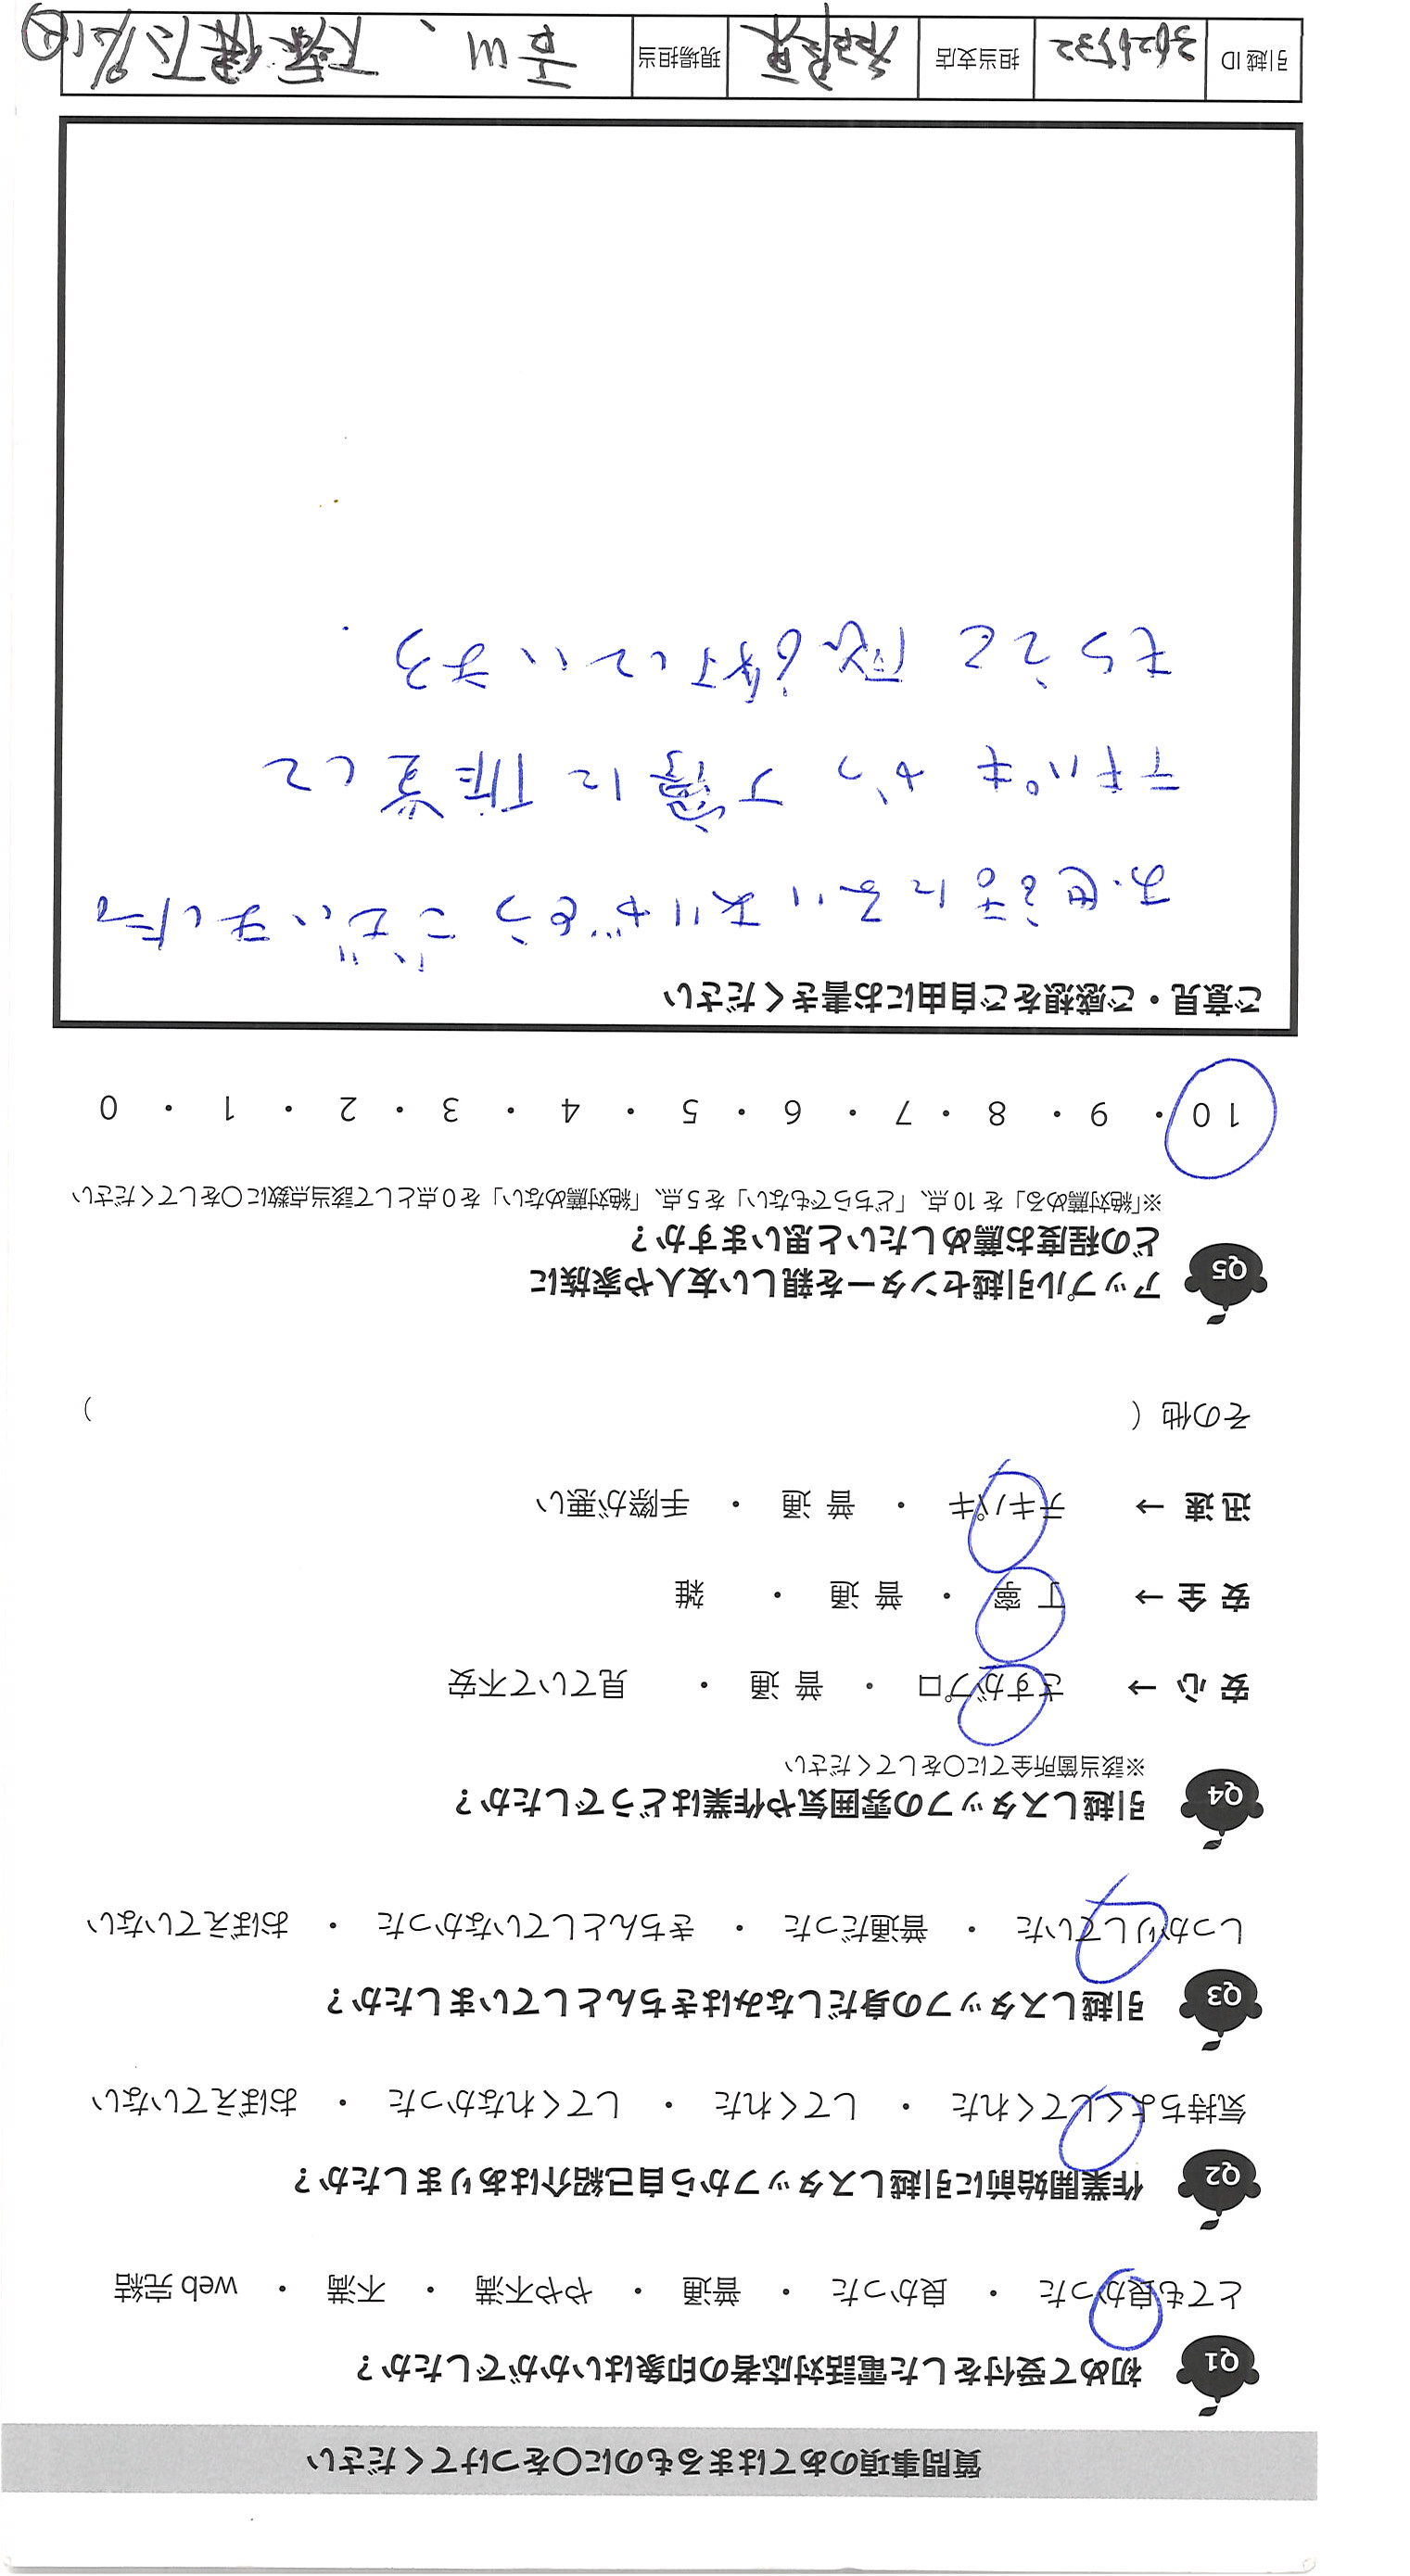 質問事項のあてはまるものに〇をつけてください
Q1 初めて受付をした電話対応者の印象はいかがでしたか？
とても良かった ・ 良かった ・ 普通 ・ やや不満 ・ 不満 ・ web 完結
Q2 作業開始前に引越しスタッフから自己紹介はありましたか？
気持ちよくしてくれた ・ してくれた ・ してくれなかった ・ おぼえていない
Q3 引越しスタッフの身だしなみはきちんとしていましたか？
しっかりしていた ・ 普通だった ・ きちんとしていなかった ・ おぼえていない
Q4 引越しスタッフの雰囲気や作業はどうでしたか？
※該当箇所全てに〇をしてください
安 心 → さすがプロ ・ 普 通 ・ 見ていて不安
安 全 → 丁 寧 ・ 普 通 ・ 雑
迅 速 → テキパキ ・ 普 通 ・ 手際が悪い
その他（ ）
Q5 アップル引越センターを親しい友人や家族に
どの程度お薦めしたいと思いますか？
※「絶対薦める」を 10 点、「どちらでもない」を 5 点、「絶対薦めない」を 0 点として該当点数に〇をしてください
10 ・ 9 ・ 8 ・ 7 ・ 6 ・ 5 ・ 4 ・ 3 ・ 2 ・ 1 ・ 0
ご意見・ご感想をご自由にお書きください
お世話になりありがとうございました。
テキパキかつ丁寧に作業して
もらえて感謝しています.
引越 ID 3026532 担当支店 現場担当 高山、